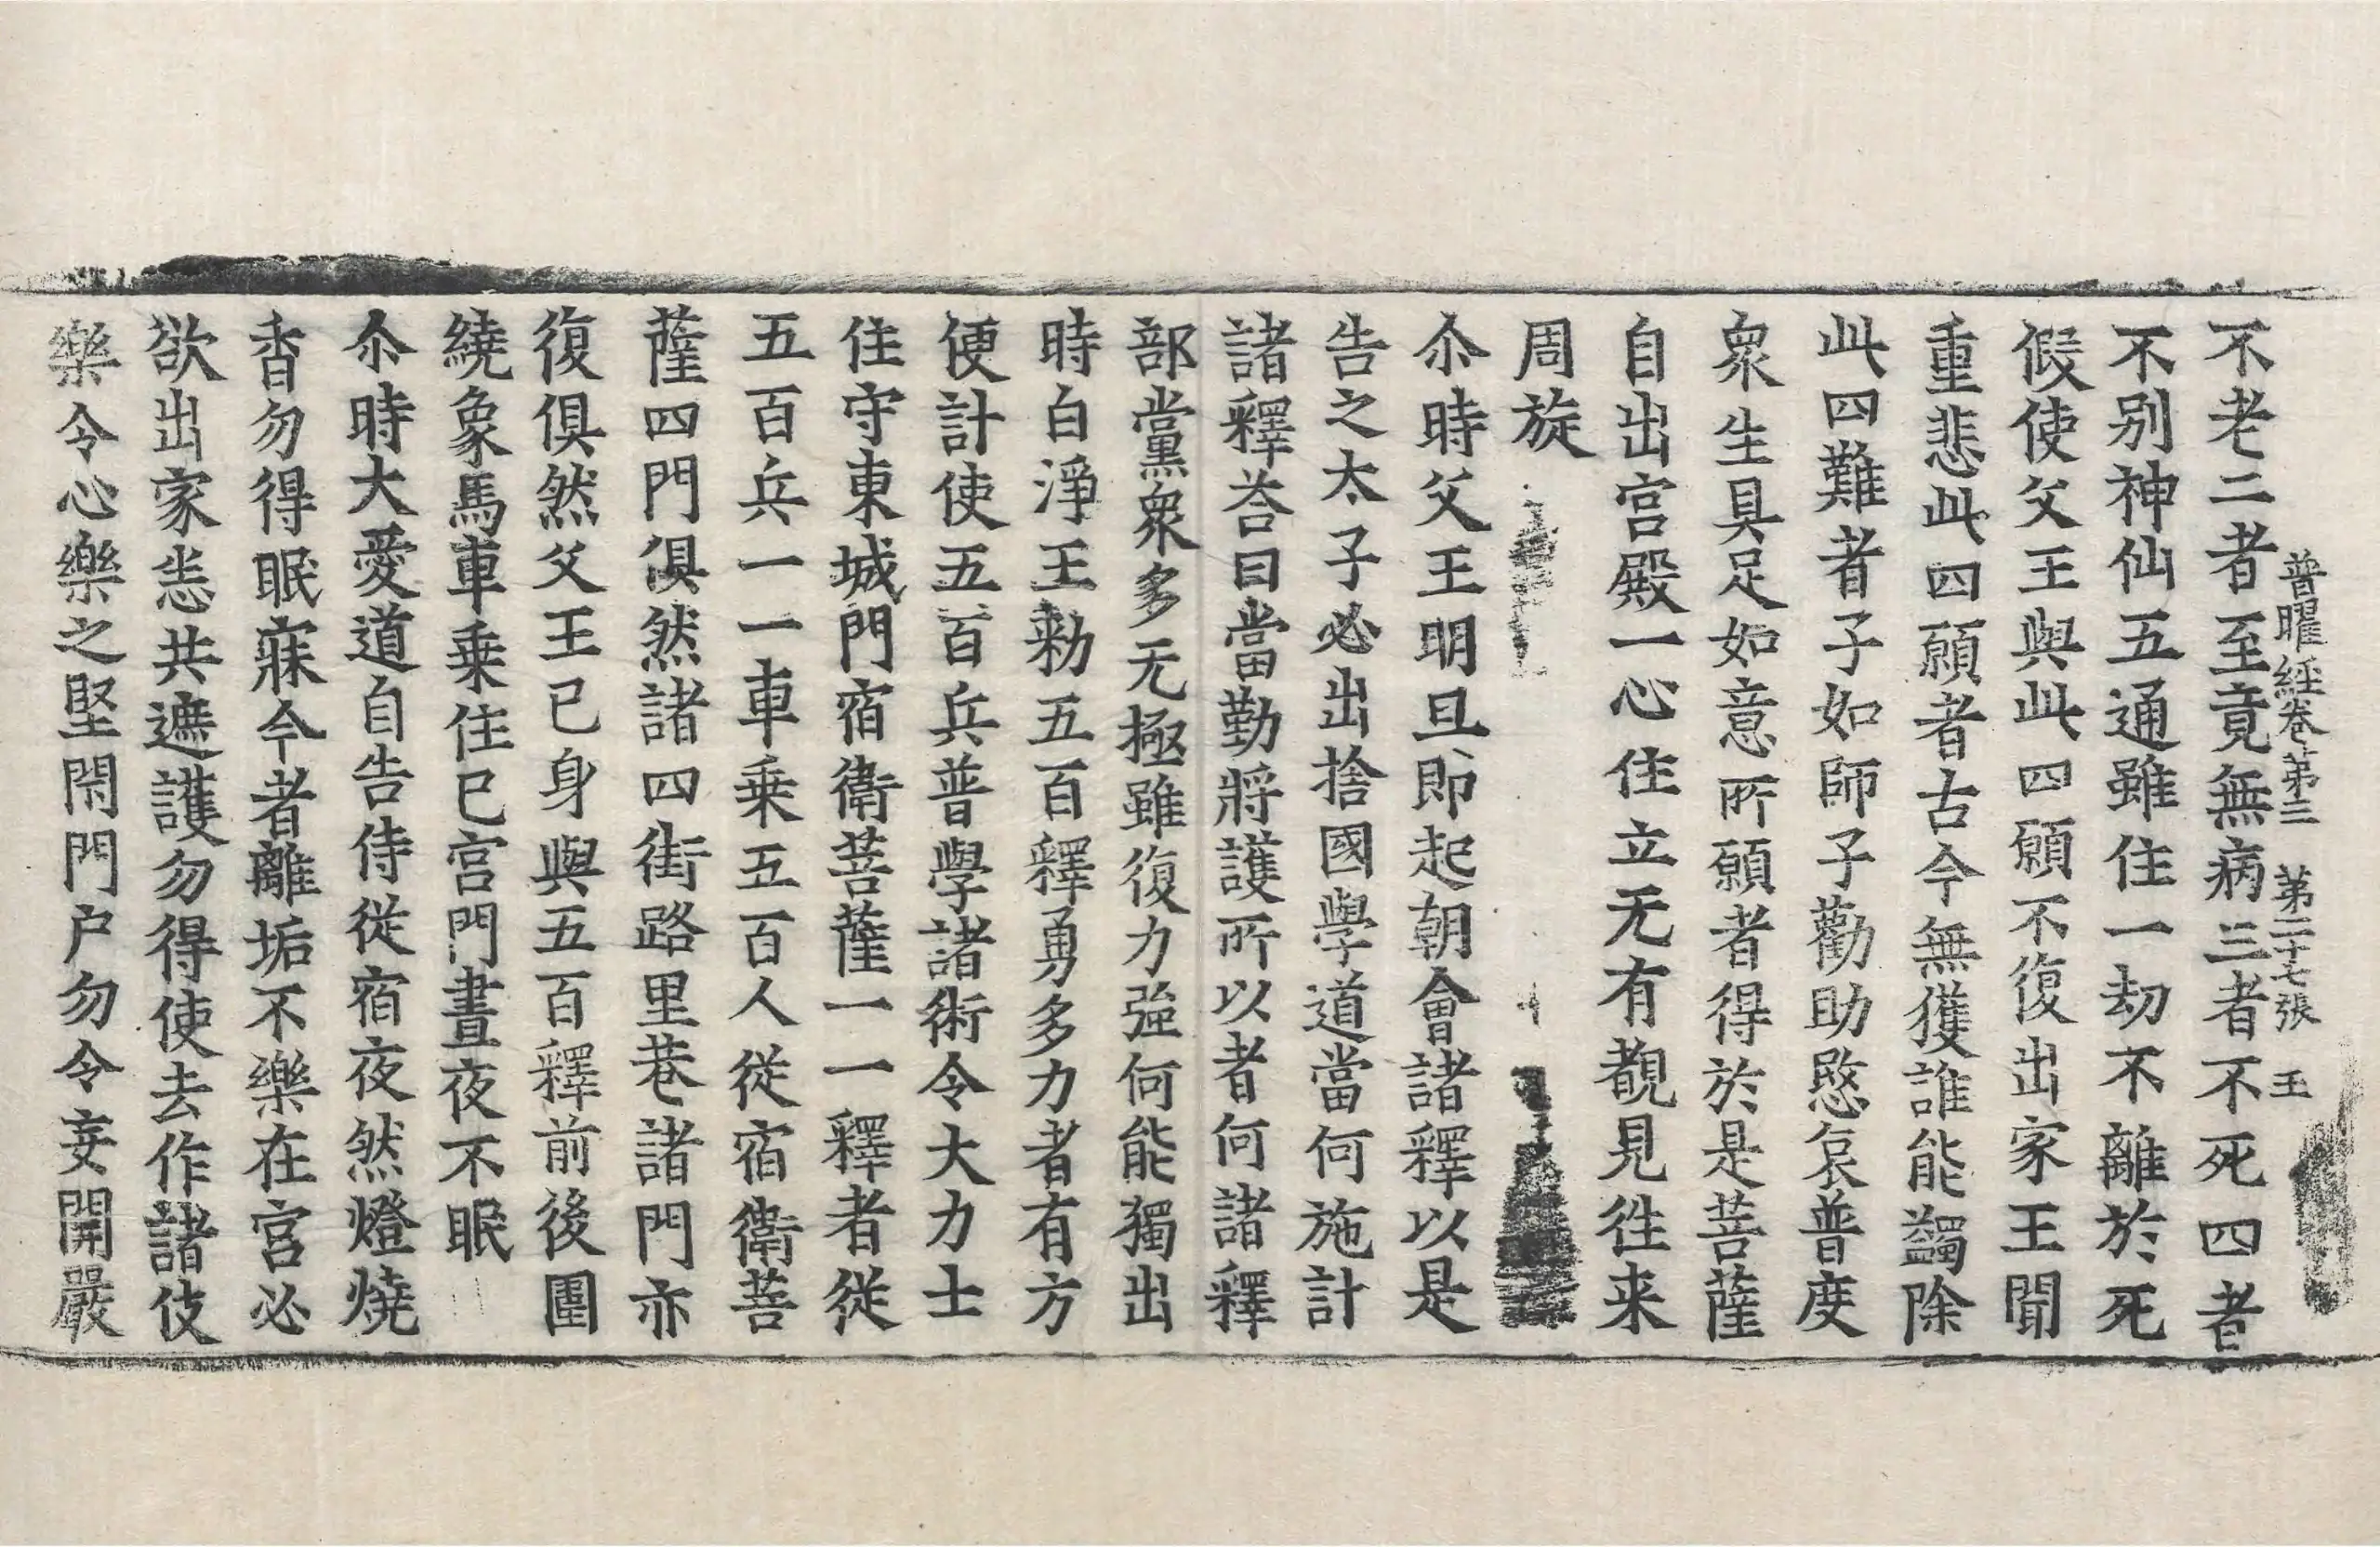 普曜經卷第三 第二十七張 王
不老二者至竟無病三者不死四者
不別神仙五通雖住一劫不離於死
假使父王與此四願不復出家王聞
重悲此四願者古今無獲誰能蠲除
此四難者子如師子勸助愍哀普度
衆生具足如意所願者得於是菩薩
自出宮殿一心住立无有覩見徃来
周旋
尒時父王明旦即起朝會諸釋以是
告之太子必出捨國學道當何施計
諸釋荅曰當勤將護所以者何諸釋
部黨衆多无極雖復力強何能獨出
時白淨王勑五百釋勇多力者有方
便計使五百兵普學諸術令大力士
住守東城門宿衛菩薩一一釋者從
五百兵一一車乗五百人從宿衛菩
薩四門俱然諸四街路里巷諸門亦
復俱然父王已身與五百釋前後圍
繞象馬車乗住已宮門晝夜不眠
尒時大愛道自告侍從宿夜然燈燒
香勿得眠寐今者離垢不樂在宮必
欲出家恙共遮護勿得使去作諸伎
樂令心樂之堅閇門户勿令妄開嚴